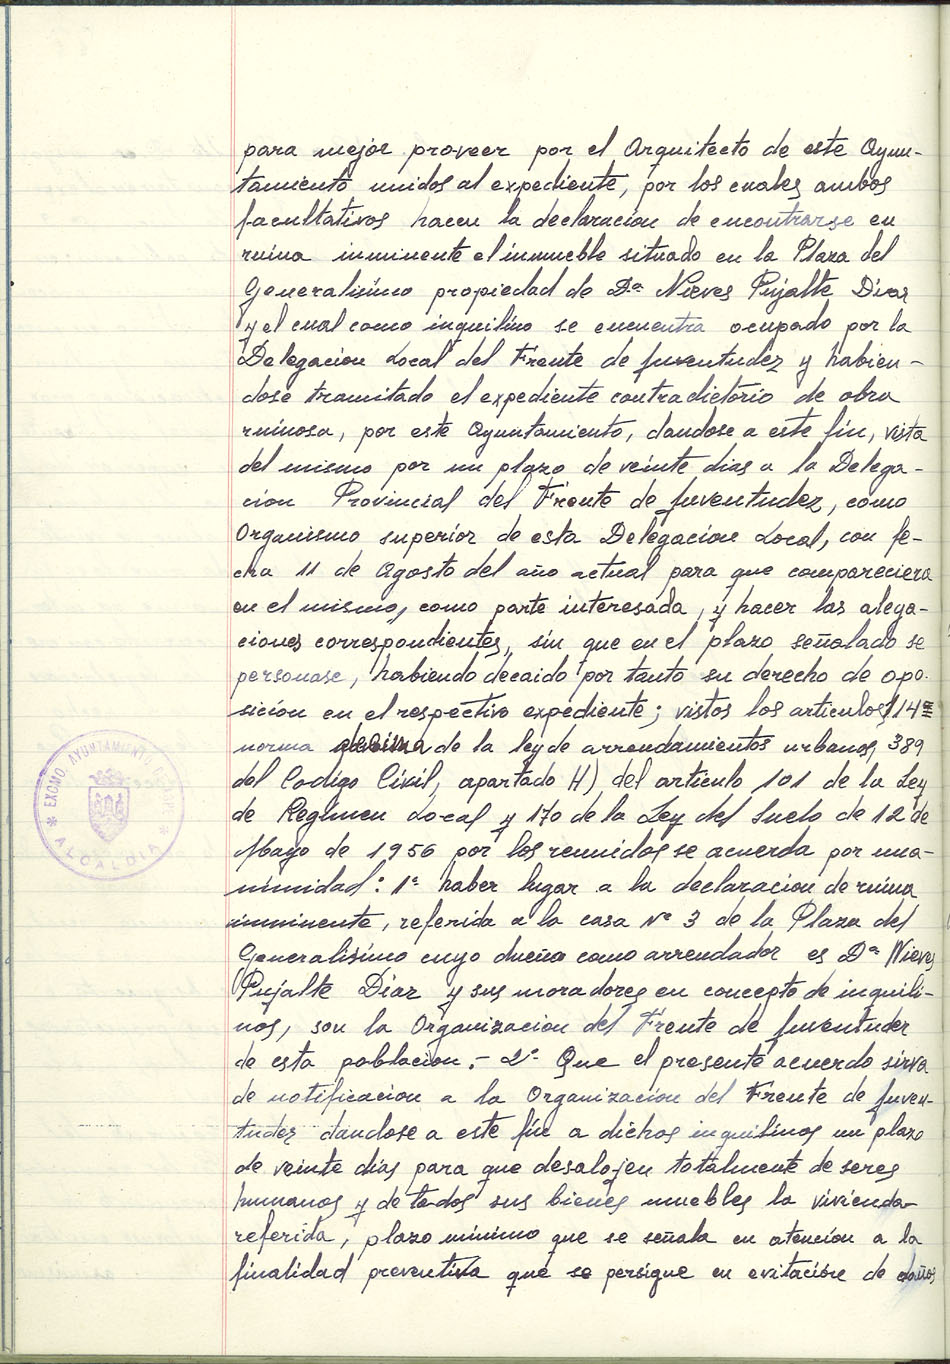 para mejor proveer por el Arquitecto de este Ayun-
tamiento unidos al expediente, por los cuales ambos
facultativos hacen la declaracion de encontrarse en
ruina inminente el inmueble situado en la Plaza del
Generalisimo propiedad de Dª Nieves Pujalte Diaz
y el cual como inquilino se encuentra ocupado por la
Delegacion Local del Frente de Juventudez y habien-
dose tramitado el expediente contradictorio de obra
ruinosa, por este Ayuntamiento, dandose a este fin, vista
del mismo por un plazo de veinte dias a la Delega-
cion Provincial del Frente de Juventudez, como
Organismo superior de esta Delegacion Local, con fe-
cha 11 de Agosto del año actual para que compareciera
en el mismo, como parte interesada, y hacer las alega-
ciones correspondientes, sin que en el plazo señalado se
personase, habiendo decaido por tanto su derecho de opo-
sicion en el respectivo expediente; vistos los articulos 114
norma de la ley de arrendamientos urbanos, 389
del Codigo Civil, apartado H) del articulo 101 de la Ley
de Regimen Local y 170 de la Ley del Suelo de 12 de
Mayo de 1956 por los reunidos se acuerda por una-
nimidad: 1º haber lugar a la declaracion de ruina
inminente, referida a la casa Nº 3 de la Plaza del
Generalisimo cuyo dueño como arrendador es Dª Nieves
Pujalte Diaz y sus moradores en concepto de inquili-
nos, son la Organizacion del Frente de Juventudez
de esta poblacion.- 2º Que el presente acuerdo sirva
de notificacion a la Organizacion del Frente de Juven-
tudez dandose a este fin a dichos inquilinos un plazo
de veinte dias para que desalojen totalmente de seres
humanos y de todos sus bienes muebles la vivienda
referida, plazo minimo que se señala en atencion a la
finalidad preventiva que se persigue en evitación de daños
EXCMO. AYUNTAMIENTO
ALCALDIA